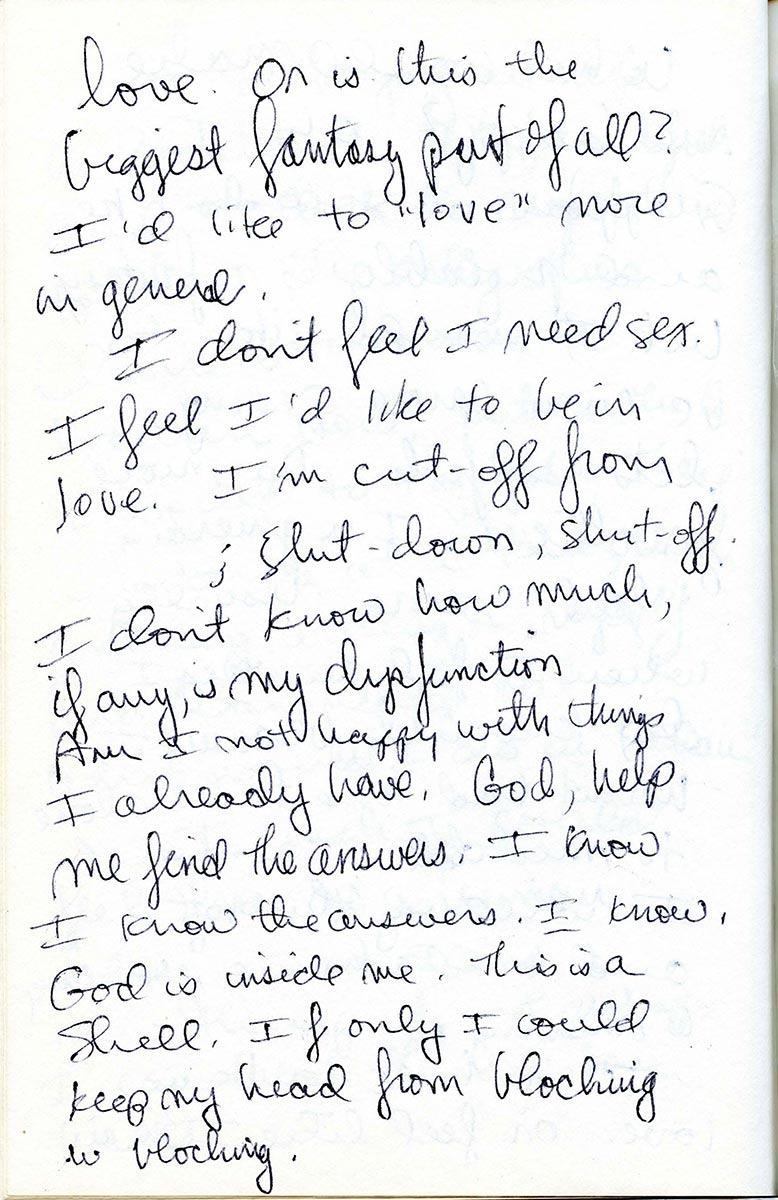 love. Or is this the
biggest fantasy part of all?
I'd like to "love" more
in general.
I don't feel I need sex.
I feel I'd like to be in
love. I'm cut-off from
; shut-down, shut-off.
I don't know how much,
if any, is my dysfunction
Am I not happy with things
I already have. God, help
me find the answers. I know
I know the answers. I know.
God is inside me. This is a
Shell. If only I could
keep my head from blocking
blocking.